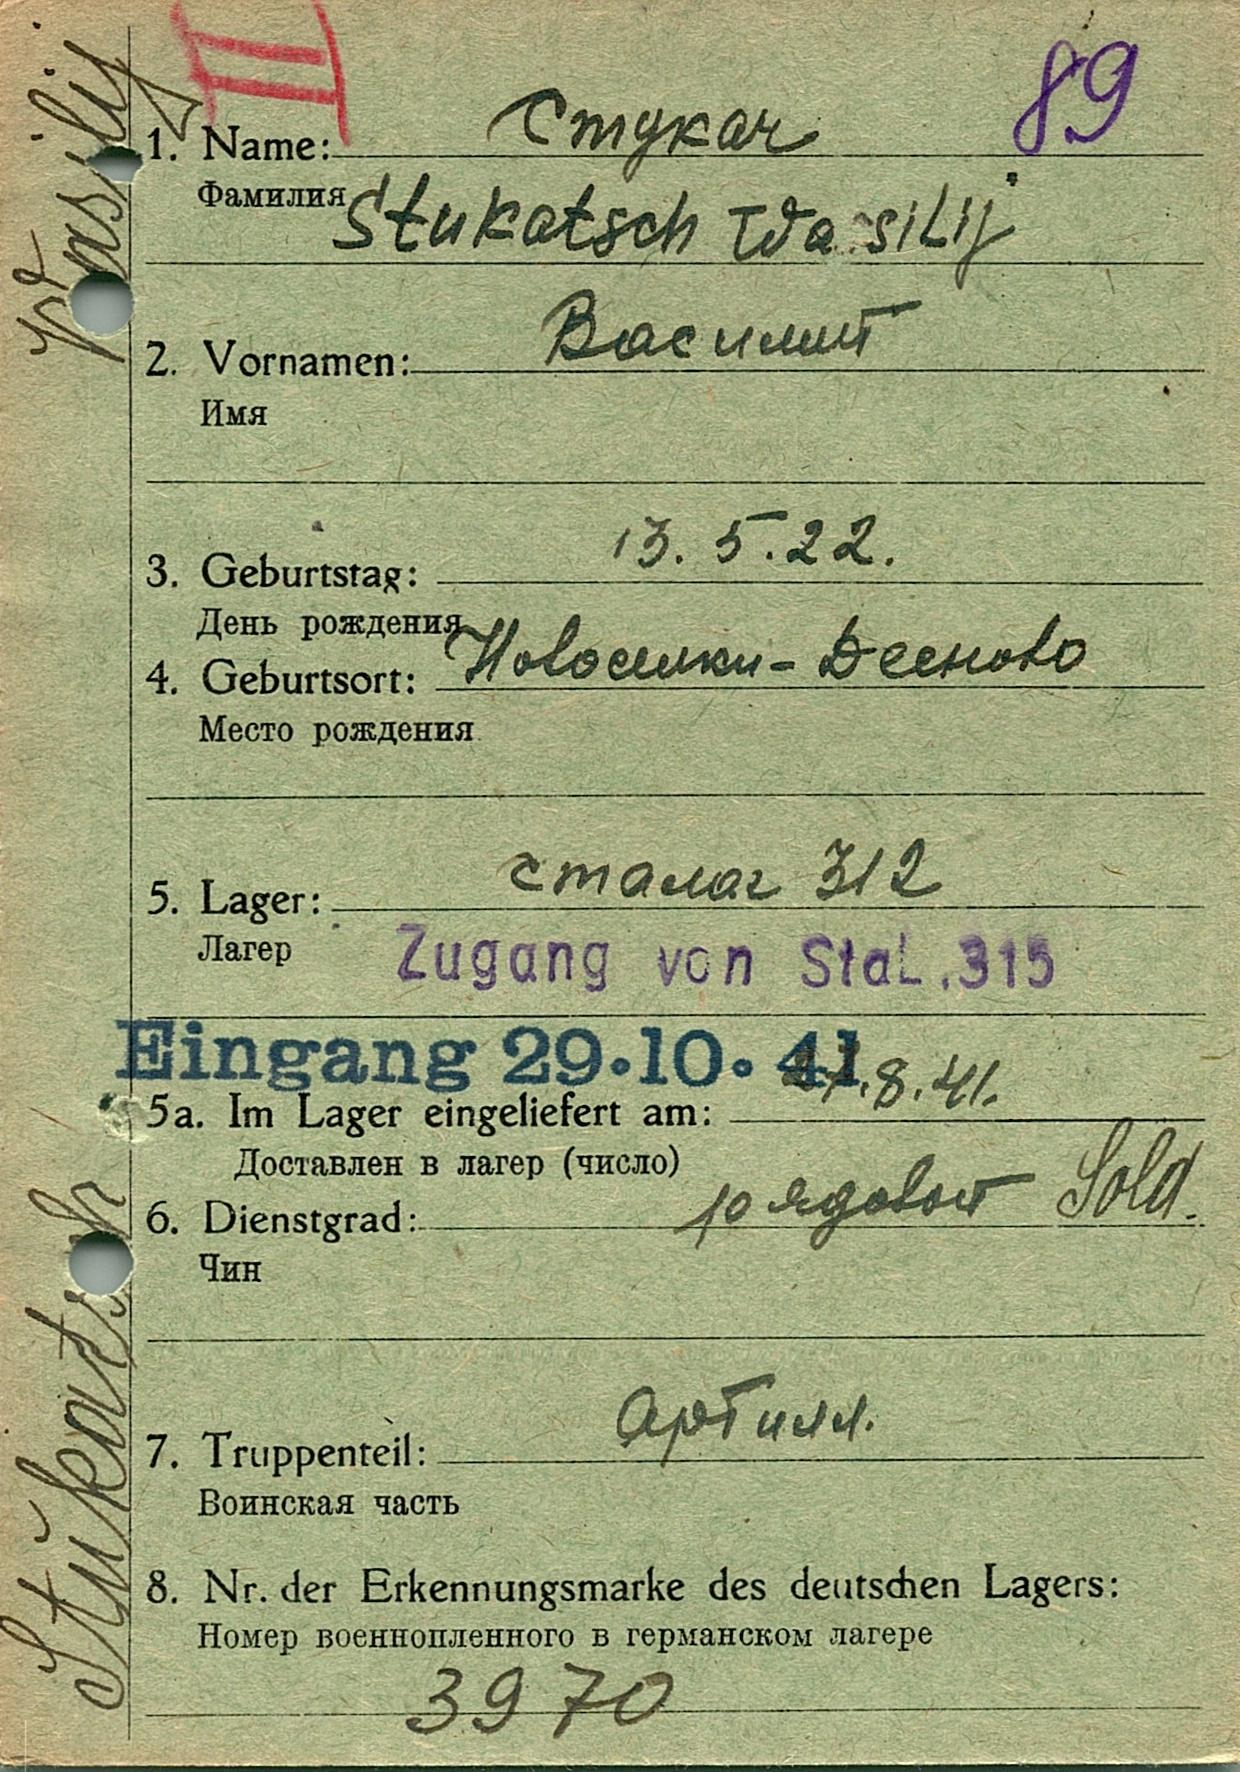 II
89
1. Name: Стукач
Фамилия
Stukatsch Wasilij
2. Vornamen: Василий
Имя
3. Geburtstag: 13. 5. 22.
День рождения
4. Geburtsort: Новоселки-Десново
Место рождения
5. Lager: сталаг 312
Лагер Zugang von Stal. 315
Eingang 29.10.41
5a. Im Lager eingeliefert am: .8.41.
Доставлен в лагер (число)
6. Dienstgrad: рядовой Sold.
Чин
7. Truppenteil: артилл.
Воинская часть
8. Nr. der Erkennungsmarke des deutschen Lagers:
Номер военнопленного в германском лагере
3970
Stukatsch Wasilij